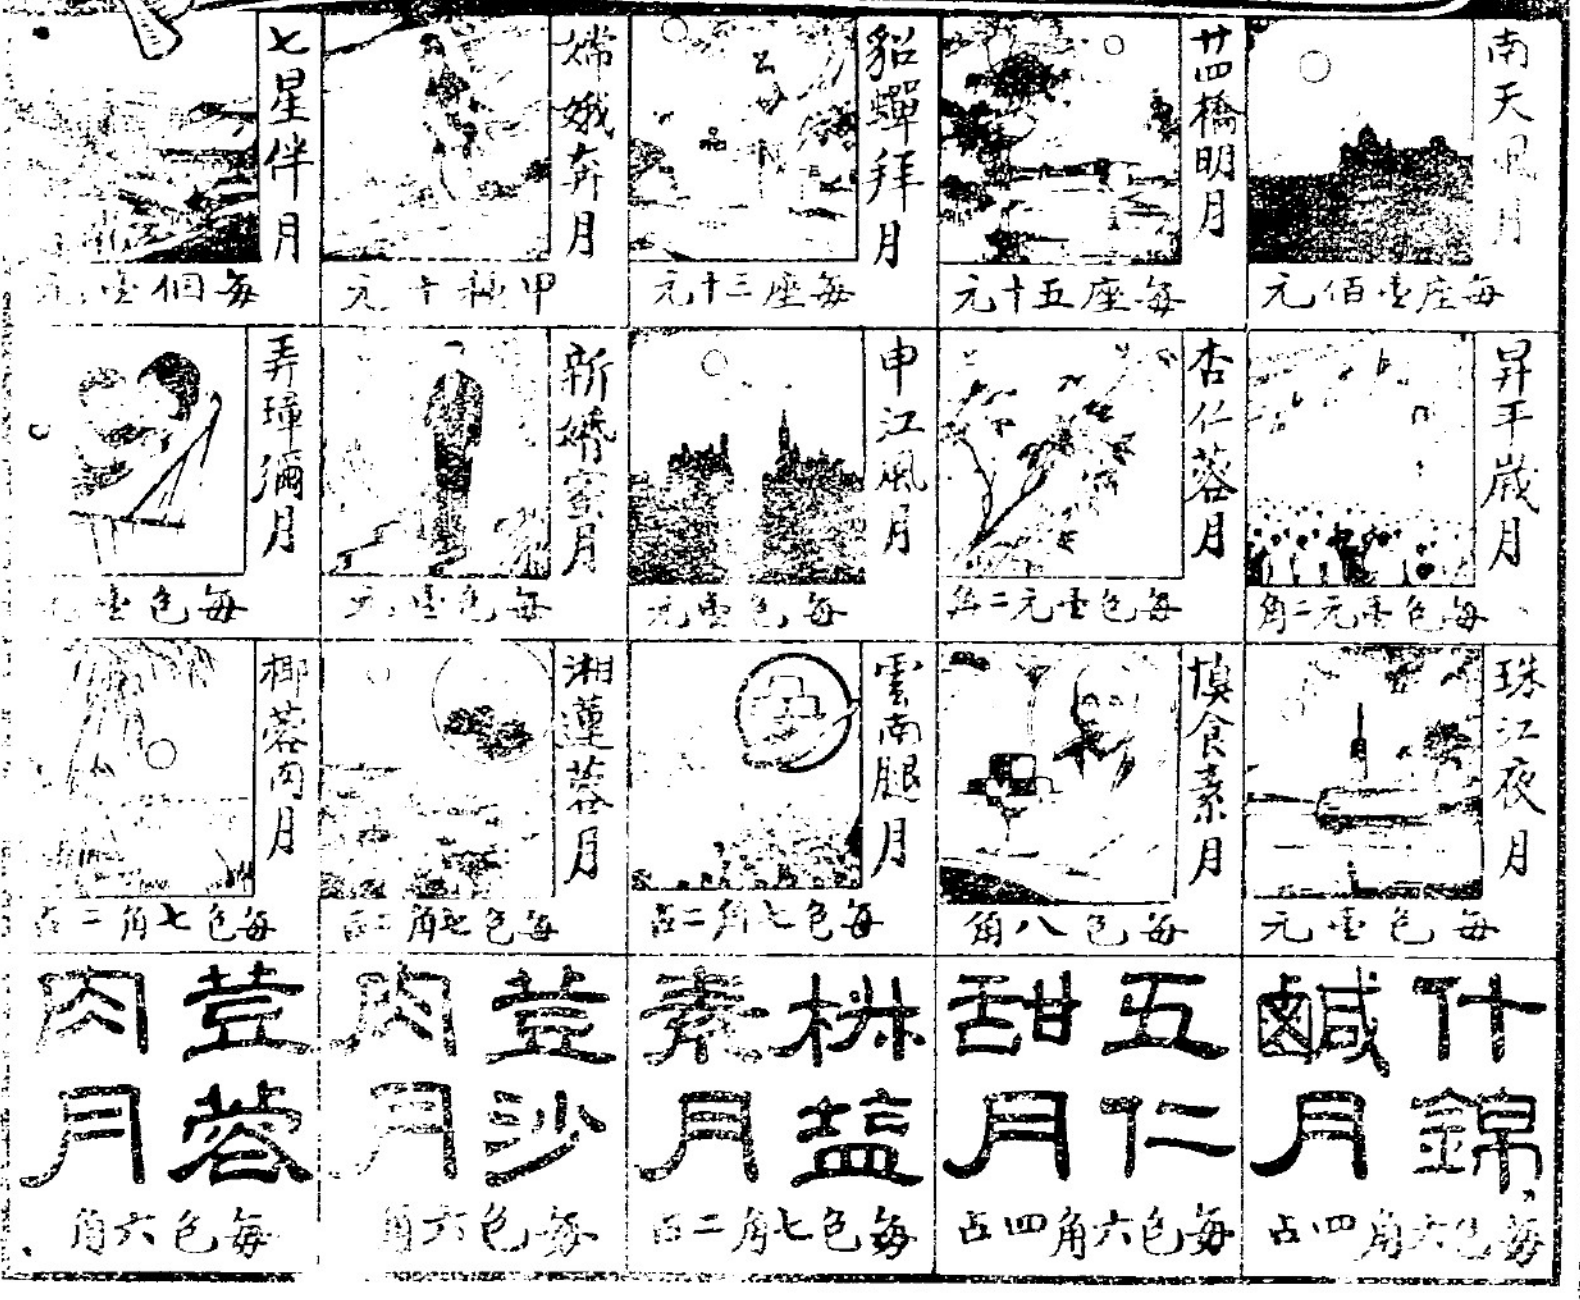 南天風月
每座壹佰元
廿四橋明月
每座五十元
貂蟬拜月
每座三十元
嫦娥奔月
甲種十元
七星伴月
每個壹元
昇平歲月
每色壹元二角
杏仁蓉月
每色壹元二角
申江風月
每色壹元
新婚蜜月
每色壹元
弄璋彌月
每色壹
珠江夜月
每色壹元
食素月
每色八角
雲南腿月
每色七角二占
湘蓮蓉月
每色七角二占
椰蓉肉月
每色七角二占
什錦
鹹月
每色六角四占
五仁
甜月
每色六角四占
椒盐
素月
每色七角二占
荳沙
肉月
每色六角
荳蓉
肉月
每色六角